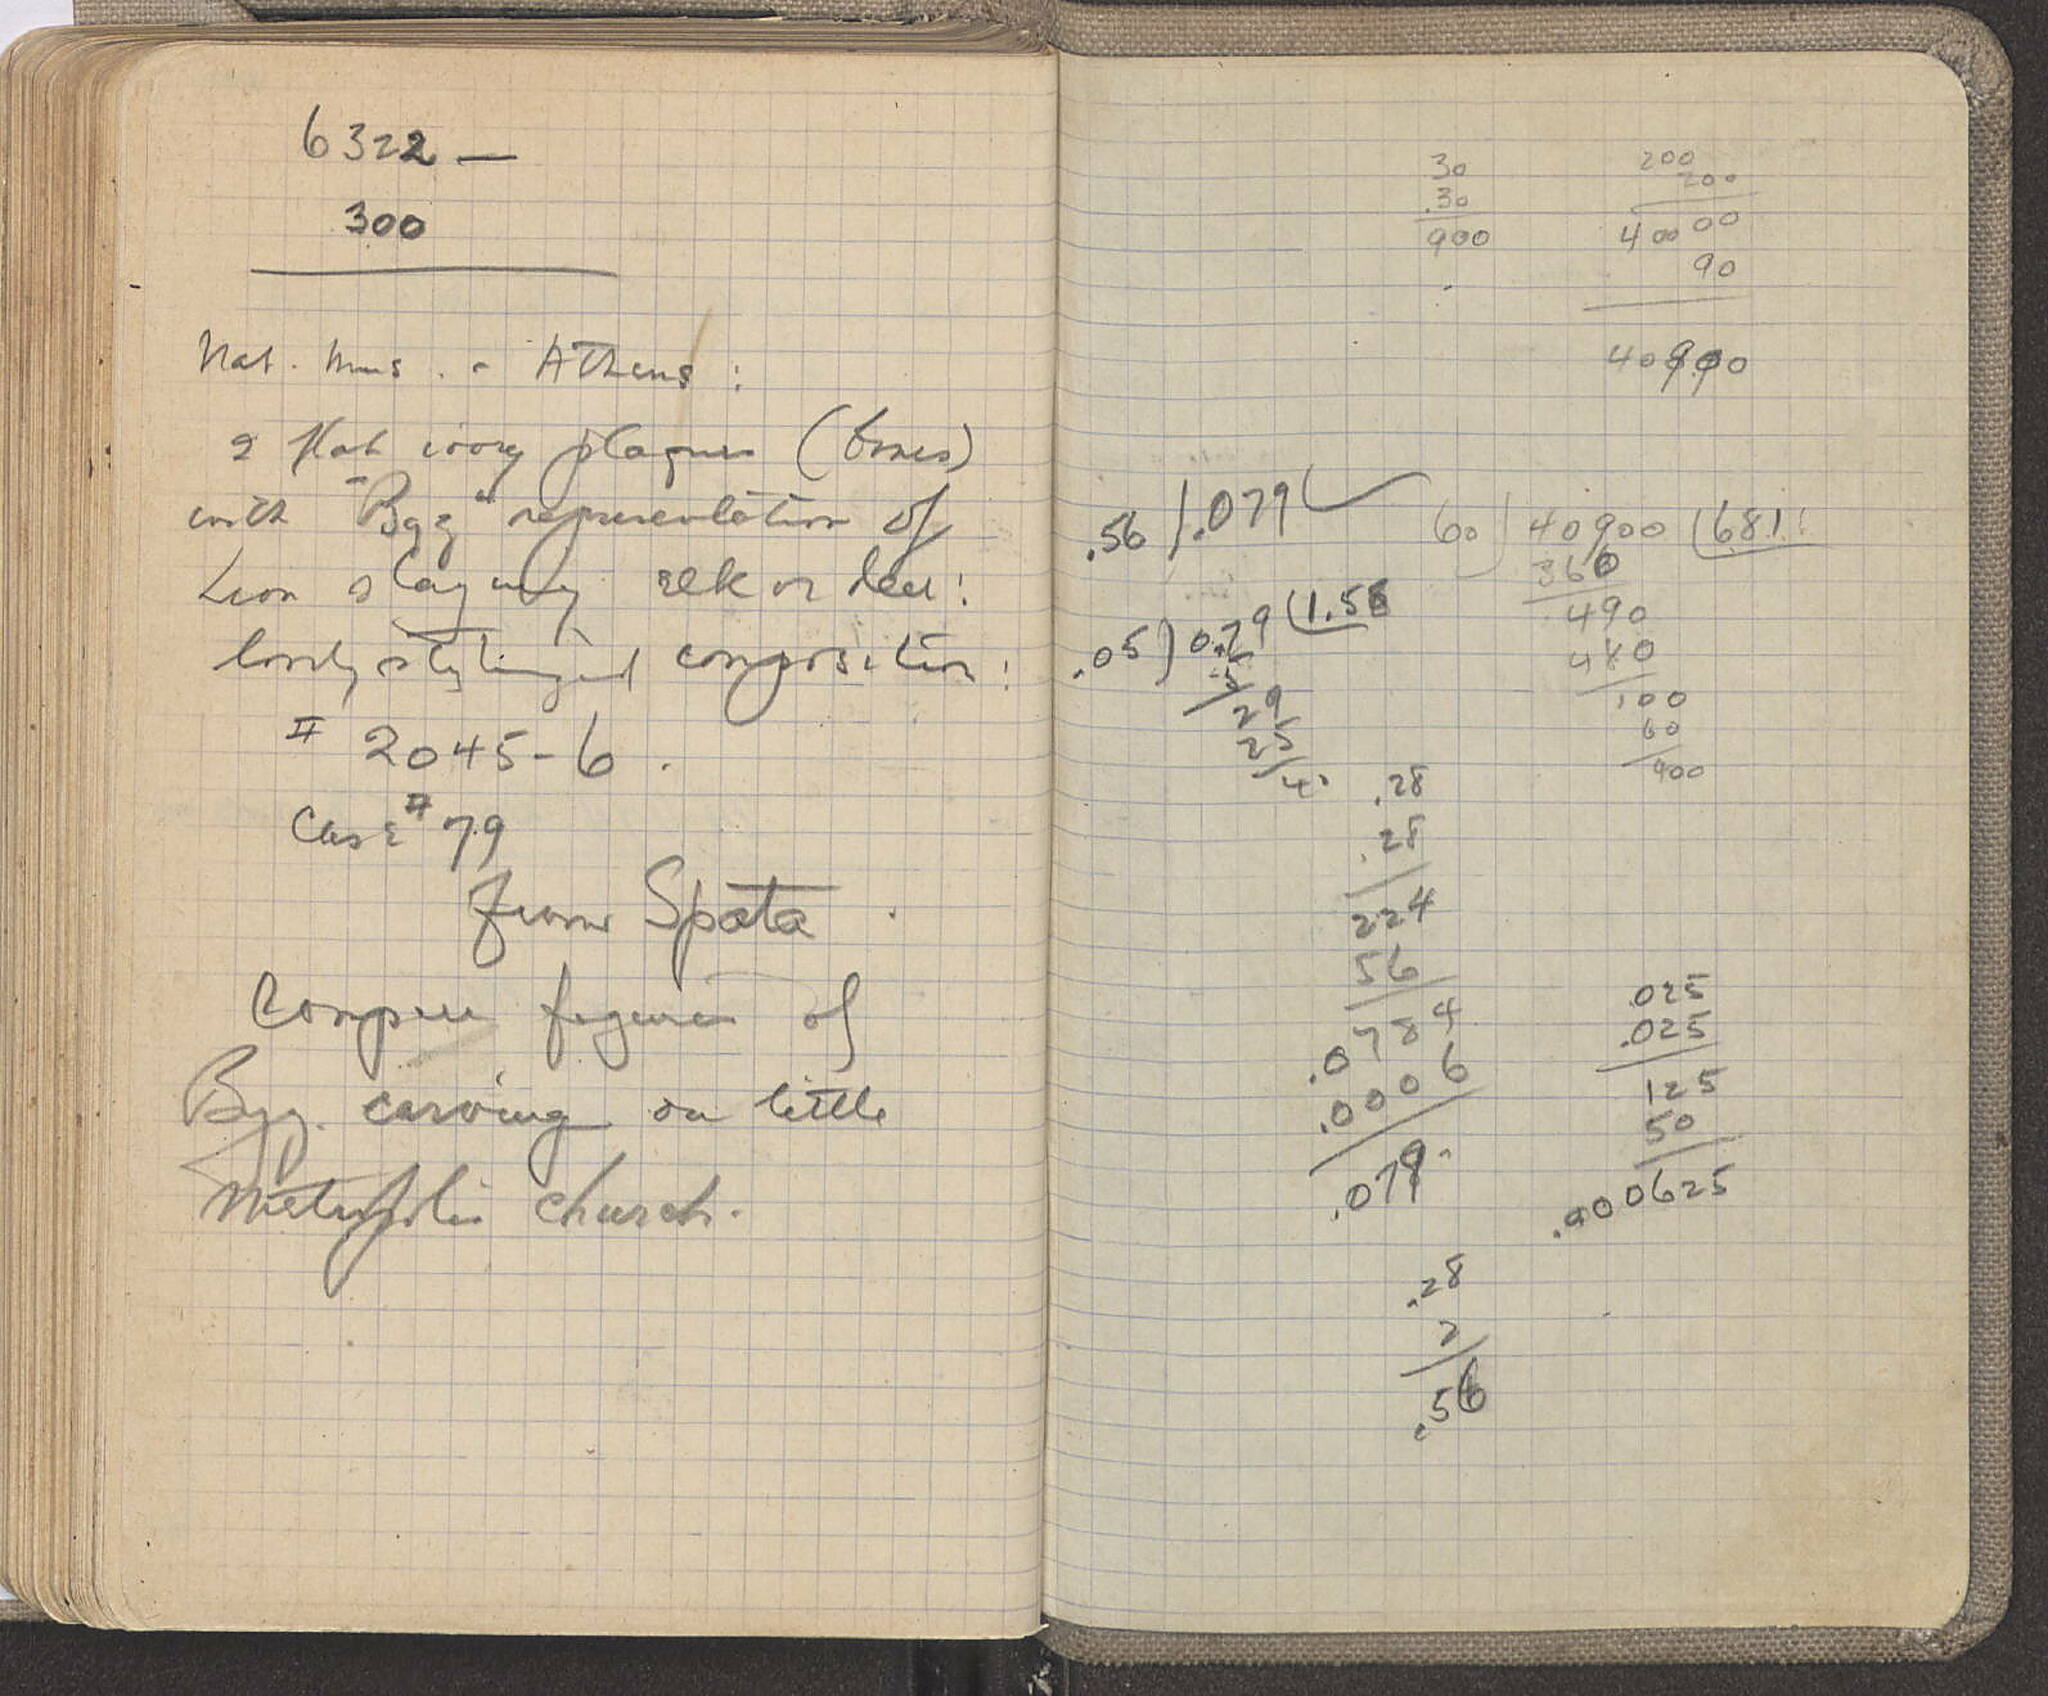 6322 —
300
Nat. Mus. - Athens :
2 flat ivory plaques (bones)
with "Byz" representation of
Lion slaying elk or deer :
lovely stylized composition :
# 2045-6 .
Case # 79
from Spata .
Compare figures of
Byz. carving on little
Metropolis church.
30
.30
900
200
200
40000 00
90
40900
.56 ) .079 (
.05 ) 0.79 ( 1.58
5
29
25
4
60 ) 40900 ( 681
360
490
480
100
60
400
.28
.28
224
56
.0784
.0006
.079
.025
.025
125
50
.000625
.28
2
.56